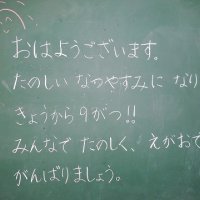 おはようございます。
たのしい なつやすみに なり
きょうから9がつ!!
みんなで たのしく、えがおで
がんばりましょう。